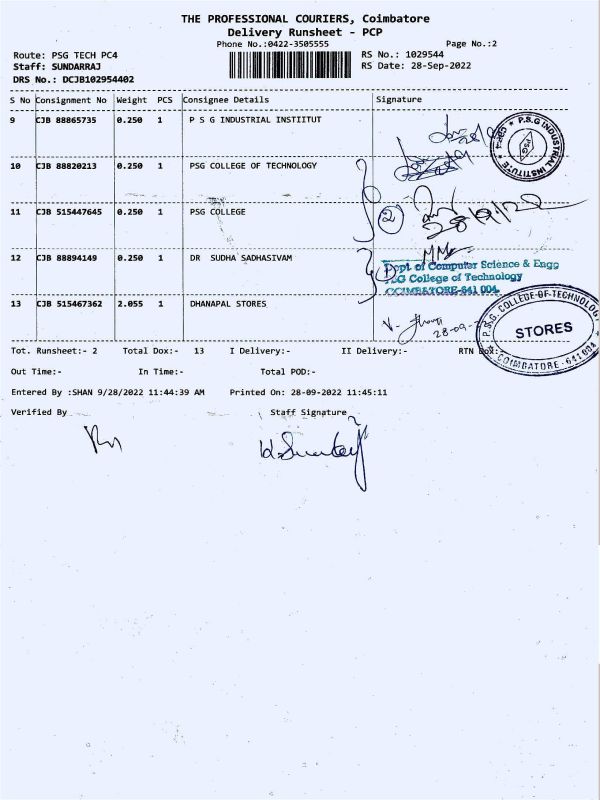 THE PROFESSIONAL COURIERS, Coimbatore
Delivery Runsheet - PCP
Phone No.:0422-3505555 Page No.:2
Route: PSG TECH PC4 RS No.: 1029544
Staff: SUNDARRAJ RS Date: 28-Sep-2022
DRS No.: DCJB102954402
S No Consignment No Weight PCS Consignee Details Signature
9 CJB 88865735 0.250 1 P S G INDUSTRIAL INSTIITUT
P.S.G INDUSTRIAL INSTITUTE
PSG
10 CJB 88820213 0.250 1 PSG COLLEGE OF TECHNOLOGY
11 CJB 515447645 0.250 1 PSG COLLEGE
2
28/9/22
12 CJB 88894149 0.250 1 DR SUDHA SADHASIVAM
1
Dept. of Computer Science & Engg
P.S.G College of Technology
COIMBATORE-641 004.
13 CJB 515467362 2.055 1 DHANAPAL STORES
28-09-
P.S.G. COLLEGE OF TECHNOLOGY
STORES
COIMBATORE - 641 004
Tot. Runsheet:- 2 Total Dox:- 13 I Delivery:- II Delivery:- RTN Dox:-
Out Time:- In Time:- Total POD:-
Entered By :SHAN 9/28/2022 11:44:39 AM Printed On: 28-09-2022 11:45:11
Verified By Staff Signature